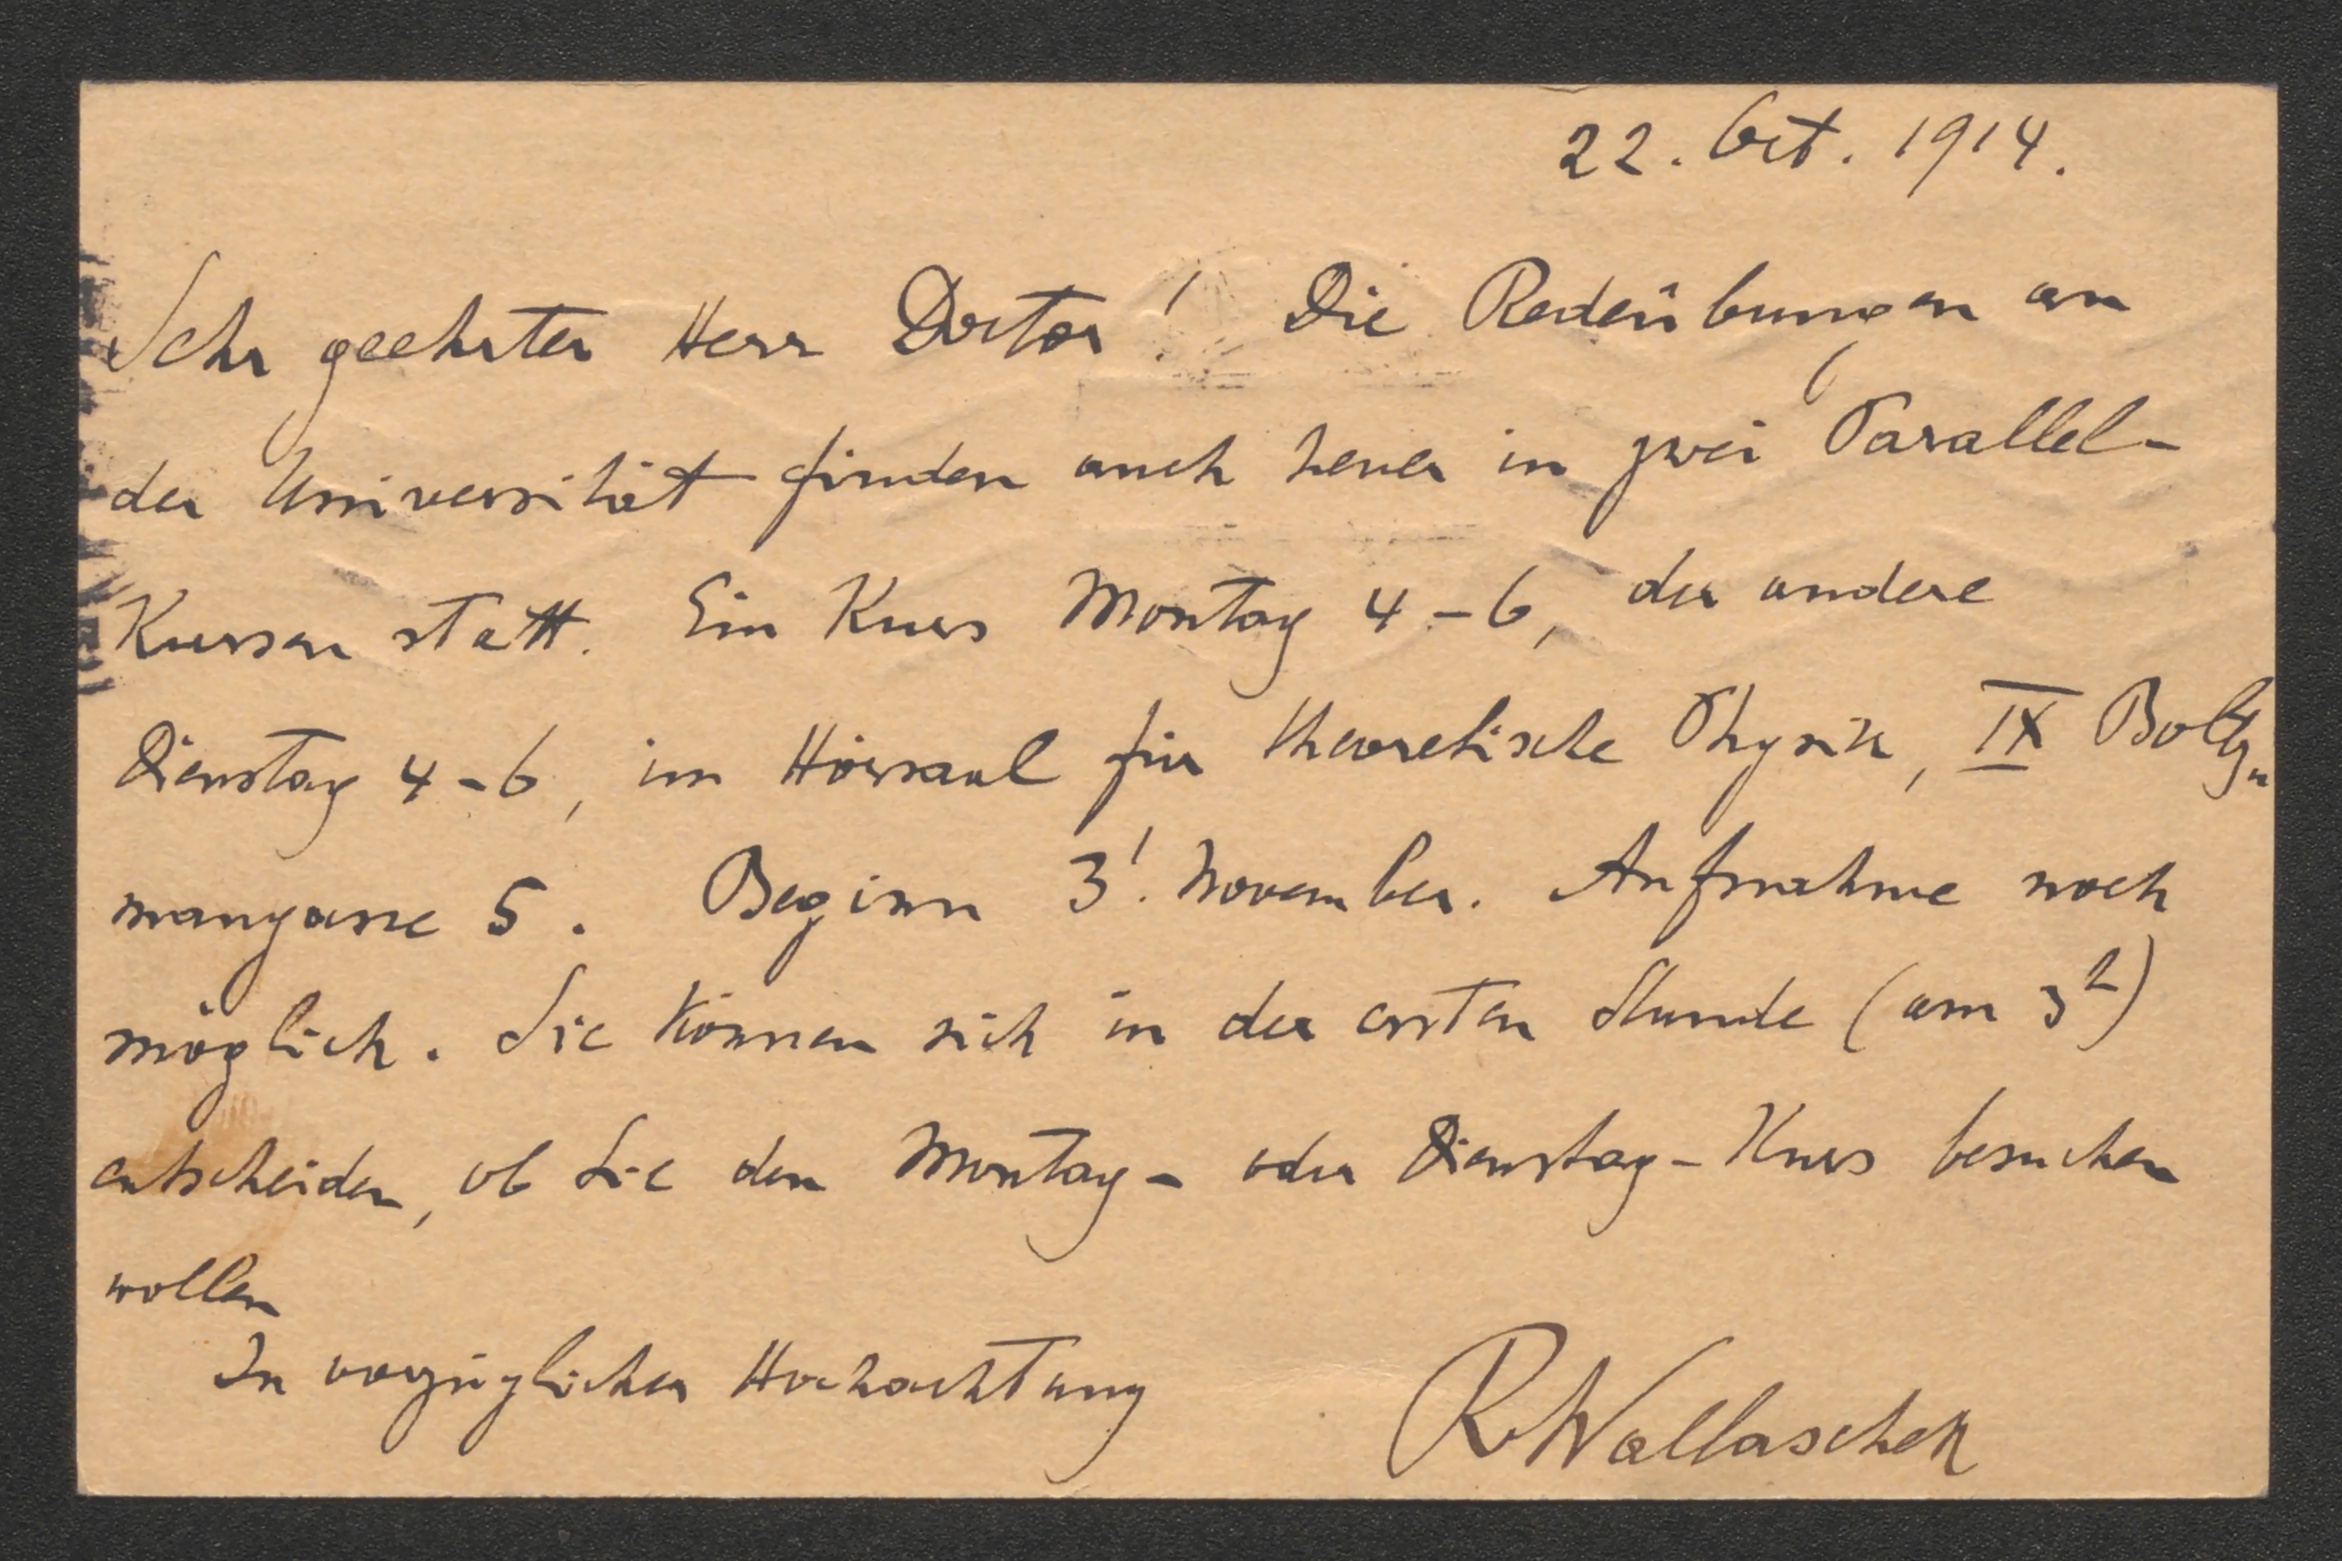 22. Oct. 1914.
Sehr geehrter Herr Doctor! Die Redeübungen an
der Universität finden auch heuer in zwei Parallel-
Kursen statt. Ein Kurs Montag 4-6, der andere
Dienstag 4-6, im Hörsaal für theoretische Physik, IX Boltz„
manngasse 5. Beginn 3!. November. Aufnahme noch
möglich. Sie können sich in der ersten Stunde (am 3t)
entscheiden, ob Sie den Montag- oder Dienstag-Kurs besuchen
wollen
In vorzüglicher Hochachtung
RWallaschek